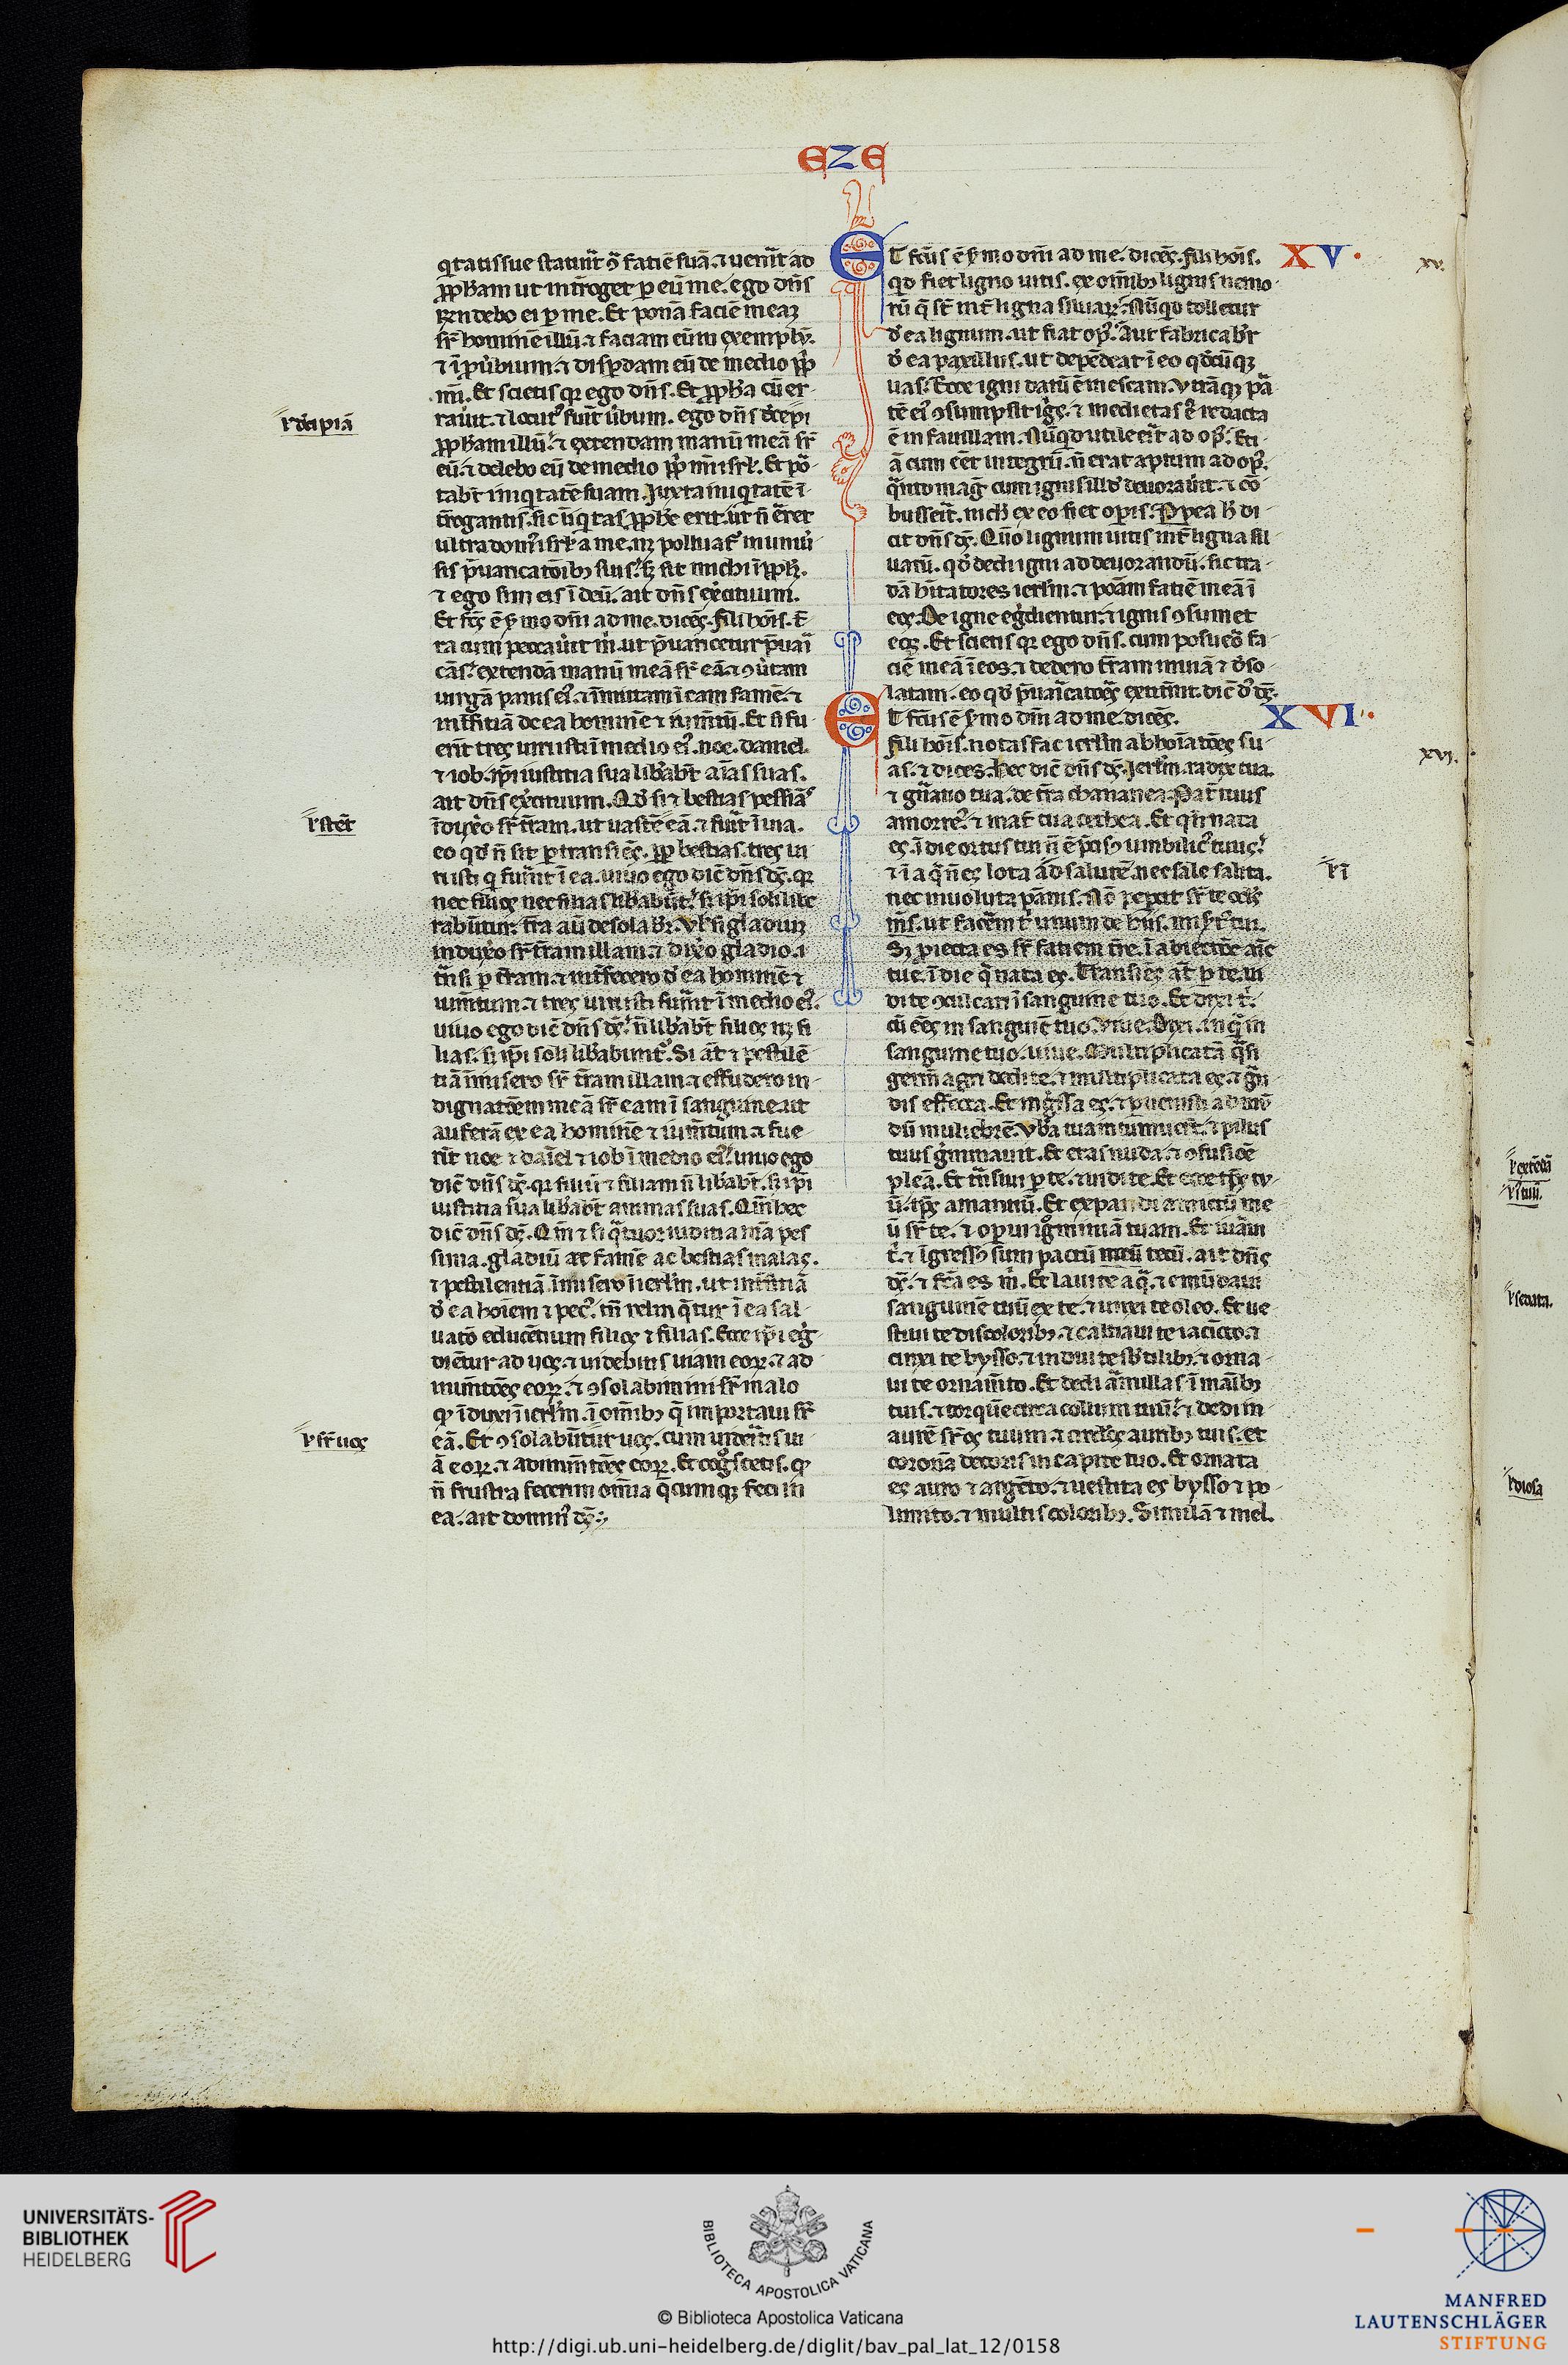 EZE
q̄tatis sue statuit ꝯ̄ faciē suā. ⁊ uenīt ad
ꝓph̄am ut int̄roget ꝑ eū me. ego dn̄s
rn̄debo ei ꝑ me. Et ponā faciē meaꝫ
sr̄ hominē illū. ⁊ faciam eum exemplū.
⁊ ī ꝓu̓bium. ⁊ disꝑdam eū de medio ppl̓i
mī. Et scietis qꝛ ego dn̄s. Et ꝓph̄a cū er-
rau̓it. ⁊ locut᷒ fuīt u̓bum. ego dn̄s decepi
ꝓph̄am illū. ⁊ extendam manū meā sr̄
eū. ⁊ delebo eū de medio ppl̓i mī isrl̓. Et por-
tabt̄ iniq̄tatē suam. Juxta iniq̄tatē ī-
t̄rogantis. sic iniq̄tas ꝓph̄e erit. ut n̄ erret
ultra dom᷒ isrl̓ a me. nꝫ polluat᷑ in uniu̓-
sis p̄uaricatōibꝫ suis. sꝫ sit michi ī ppl̓m.
⁊ ego sim eis ī deū. ait dn̄s exercituum.
Et fc̄s ē s̓mo dn̄i ad me. dicēs. fili hoīs. t̄-
ra cum peccau̓it m̓. ut p̄uaricetur p̄uari-
cās. extendā manū meā sr̄ eā. ⁊ ꝯt̓am
uirgā panis ei᷒. ⁊ īmittam ī eam famē. ⁊
int̄ficiā de ea hominē ⁊ iumētū. Et si fu-
erīt tres uiri isti ī medio ei᷒. noe. daniel.
⁊ iob. ip̄i iusticia sua lib̄abt̄ aīas suas.
ait dn̄s exercituum. Qd̓ si ⁊ bestias pessīas
īduxero sr̄ t̄ram. ut uastē eā. ⁊ fuīt īuia.
eo qd̓ n̄ sit ꝑtransiēs. ꝓp̄ bestias. tres ui-
ri isti q̓ fuīnt ī ea. uiuo ego dic̄ dn̄s ds̄. qꝛ
nec filios nec filias lib̄abūt. sꝫ ip̄i soli libe-
rabūtur. t̄ra aū desolabit̄. Vl̓ si gladiuꝫ
induxero sr̄ t̄ram illam. ⁊ dixero gladio.
t̄nsi ꝑ t̄ram. ⁊ int̄fecero d̓ ea hominē ⁊
iumtum. ⁊ tres uiri isti fuīnt ī medio ei᷒.
uiuo ego dic̄ dn̄s ds̄. n̄ lib̄abt̄ filios nꝫ fi-
lias. sꝫ ip̄i soli lib̄abunt᷑. Si at̄ ⁊ pestilē-
tiā īmisero sr̄ t̄ram illam. ⁊ effudero in-
dignatōem meā sr̄ eam ī sanguine. ut
auferā ex ea hominē ⁊ iumtum. ⁊ fue-
rīt noe ⁊ daniel ⁊ iob ī medio ei᷒. uiuo ego
dic̄ dn̄s ds̄. qꝛ filiū ⁊ filiam n̄ lib̄abt̄. sꝫ ip̄i
iusticia sua lib̄abt̄ animas suas. Qm̄ hec
dic̄ dn̄s ds̄. Qm̄ ⁊ si q̄tuor iudicia mā pes-
sima. gladiū ac famē ac bestias malas.
⁊ pestilentiā īmisero ī ierlm̄. ut int̄ficiā
d̓ ea hoīem ⁊ pec᷒. tn̄ relinq̄tur ī ea sal-
uatō educētium filios ⁊ filias. Ecce ip̄i eg̓-
diētur ad uos. ⁊ uidebitis uiam eoꝝ. ⁊ ad-
inuētōes eoꝝ. ⁊ ꝯsolabimini sr̄ malo
qd̓ īduxi ī ierlm̄. ī omībꝫ q̄ importaui sr̄
eā. Et ꝯsolabūtur uos. cum uideritis ui-
ā eoꝝ. ⁊ adinuētōes eoꝝ. Et cog̓scetis. qd̓
n̄ frustra fecerim omīa q̄cumqꝫ feci in
ea. ait domin᷒ ds̄.
r̓ decipiā
r̓ stēt
r̓ sr̄ uos
ET fc̄us ē s̓mo dn̄i ad me. dicēs. fili hoīs.
qd̓ fiet ligno uitis. ex omībꝫ lignis nemo-
rū q̄ st̄ int̄ ligna siluaꝝ. Nūqd̓ tolletur
d̓ ea lignum. ut fiat op᷒. Aut fabricabit̄
d̓ ea paxillus. ut depēdeat ī eo qd̓cūqꝫ
uas. Ecce igni datū ē in escam. utrāqꝫ par-
tē ei᷒ ꝯsumpsit ignis. ⁊ medietas ei᷒ redacta
ē in fauillam. Nūqd̓ utile erit ad op᷒. Eti-
ā cum eēt integrū. n̄ erat aptum ad op᷒.
q̄nto mag̓ cum ignis illd̓ deuorauit. ⁊ com-
busserit. nichil ex eo fiet operis. Ꝓpea h̓ di-
cit dn̄s ds̄. Qūo lignum uitis int̄ ligna sil-
uarū. qd̓ dedi igni ad deuorandū. sic tra-
dā hītatores ierlm̄. ⁊ ponam faciē meā ī
eos. De igne eg̓dientur. ⁊ ignis ꝯsumet
eos. Et scietis qꝛ ego dn̄s. cum posuero fa-
ciē meā ī eos. ⁊ dedero t̄ram inuiā ⁊ d̓so-
latam. eo qd̓ p̄uaricatores extiterint. dic̄ d̓ ds̄.
XV.
ET fc̄us ē s̓mo dn̄i ad me. dicēs.
fili hoīs. notas fac ierlm̄ abhoīatōes su-
as. ⁊ dices. Hec dic̄ dn̄s ds̄. Jerlm̄. radix tua.
⁊ gn̄atio tua. de t̄ra chananea. Pat̄ tuus
amorre᷒. ⁊ mat̄ tua cethea. Et qn̄ nata
es. ī die ortus tui n̄ ē p̄cisꝰ umbilic᷒ tuus.
⁊ ī aq̄ n̄ es lota ad salutē. nec sale salita.
nec inuoluta pānis. Nō peꝑcit sr̄ te ocl̓s
m̄s. ut facēm t̓ unum de hiis. mis̓t᷒ tui.
Sꝫ ꝓiecta es sr̄ faciem t̄re. ī abiectōe aīe
tue. ī die q̄ nata es. Transiēs at̄ ꝑ te. ui-
di te ꝯculcari ī sanguine tuo. Et dixi t̓.
cū eēs in sanguīe tuo. uiue. Dixi. inq̄m in
sanguine tuo. uiue. Multiplicatā q̄si
germ̄ agri dedi te. ⁊ multiplicata es. ⁊ g̓n-
dis effecta. Et ing̓ssa es. ⁊ ꝑuenisti ad mū-
dū muliebrē. Vb̄a tua intumuer̄t. ⁊ pilus
tuus g̓minauit. Et eras nuda. ⁊ ꝯfusiōe
plēa. Et t̄nsiui ꝑ te. ⁊ uidi te. Et ecce tp̄s tu-
ū. tp̄s amantiū. Et expandi amictū me-
ū sr̄ te. ⁊ oꝑui ignominiā tuam. Et iuraui
t̓. ⁊ ing̓ssꝰ sum pactū meū tecū. ait dn̄s
ds̄. ⁊ fc̄a es m̓. Et laui te aq̄. ⁊ emūdaui
sanguinē tuū ex te. ⁊ unxi te oleo. Et ue-
stiui te discoloribꝫ. ⁊ calciaui te iacincto. ⁊
cinxi te bysso. ⁊ indui te sb̓tilibꝫ. ⁊ orna-
ui te ornam̄to. Et dedi armillas ī manibꝫ
tuis. ⁊ torquē circa collum tuū. ⁊ dedi in-
aurē sr̄ os tuum. ⁊ circl̓os auribꝫ tuis. et
coronā decoris in capite tuo. Et ornata
es auro ⁊ argēto. ⁊ uestita es bysso ⁊ po-
limito. ⁊ multis coloribꝫ. Similā ⁊ mel.
XVI.
xv.
xvj.
r̓ ī
r̓ tuū.
UNIVERSITÄTS-
BIBLIOTHEK
HEIDELBERG
BIBLIOTECA APOSTOLICA VATICANA
© Biblioteca Apostolica Vaticana
http://digi.ub.uni-heidelberg.de/diglit/bav_pal_lat_12/0158
MANFRED
LAUTENSCHLÄGER
STIFTUNG